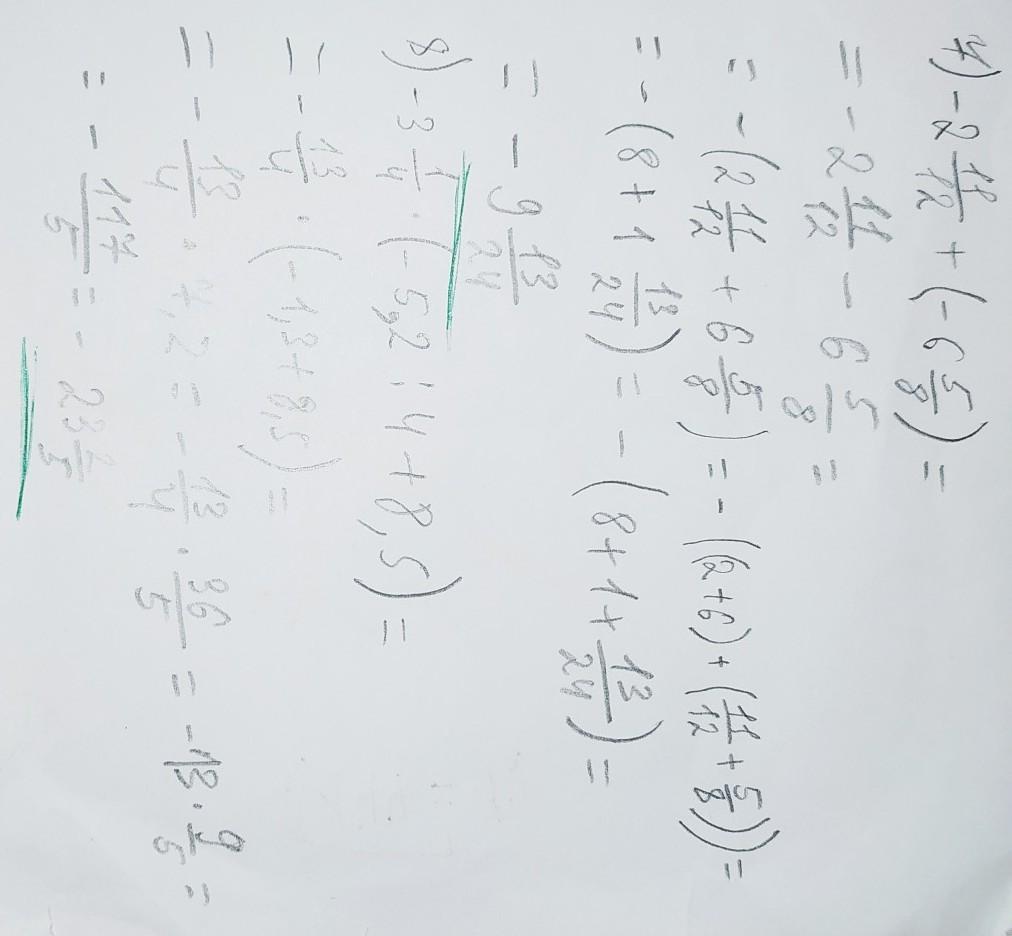 7) -2 11/12 + (-6 5/8) =
= -2 11/12 - 6 5/8 =
= -(2 11/12 + 6 5/8) = -((2+6) + (11/12 + 5/8)) =
= -(8 + 1 13/24) = -(8 + 1 + 13/24) =
= -9 13/24
8) -3 1/4 · (-5,2 : 4 + 8,5) =
= -13/4 · (-1,3 + 8,5) =
= -13/4 · 7,2 = -13/4 · 36/5 = -13 · 9/5 =
= -117/5 = -23 2/5